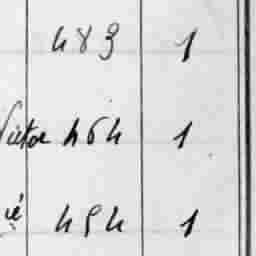 483 1
Victor 464 1
ié 454 1